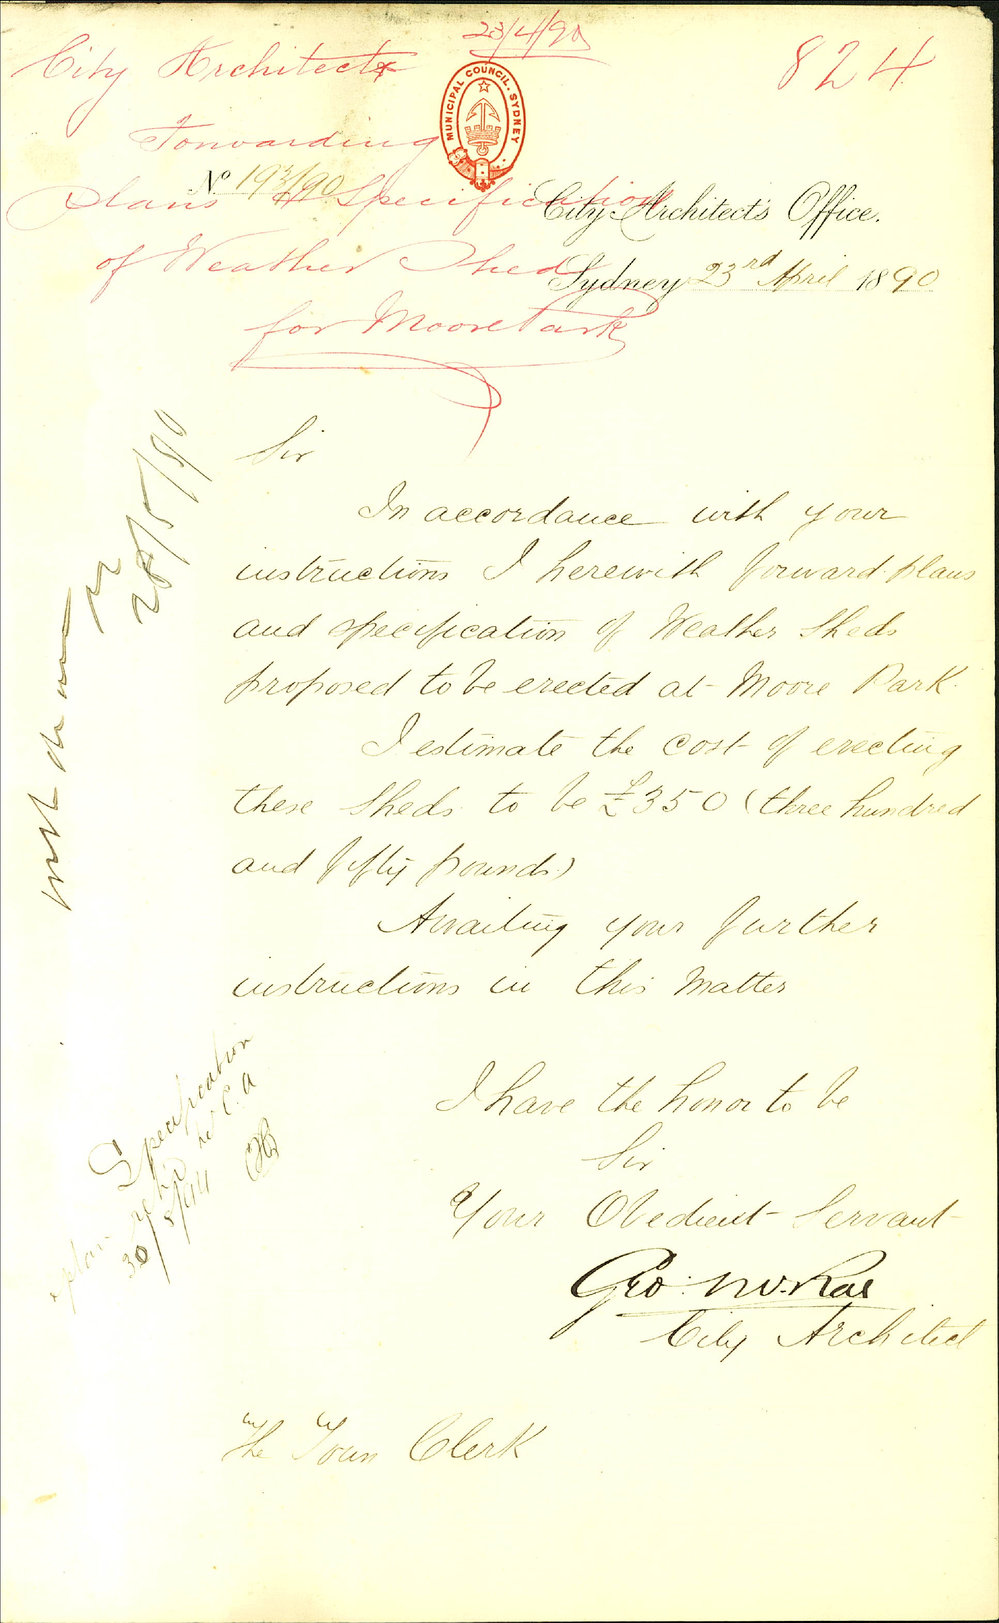 23/4/90
City Architect
824
MUNICIPAL COUNCIL. SYDNEY
Forwarding
No 193/90
plans & Specification
City Architect's Office.
of Weather Shed
Sydney 23rd April 1890
for Moore Park
Sir
In accordance with your
instructions I herewith forward plans
and specification of Weather Sheds
proposed to be erected at Moore Park.
I estimate the cost of erecting
these Sheds to be £350 (three hundred
and fifty pounds)
Awaiting your further
instructions in this matter
I have the honor to be
Sir
Your Obedient Servant
Geo. McRae
City Architect
The Town Clerk
28/5/90
Specification
plan